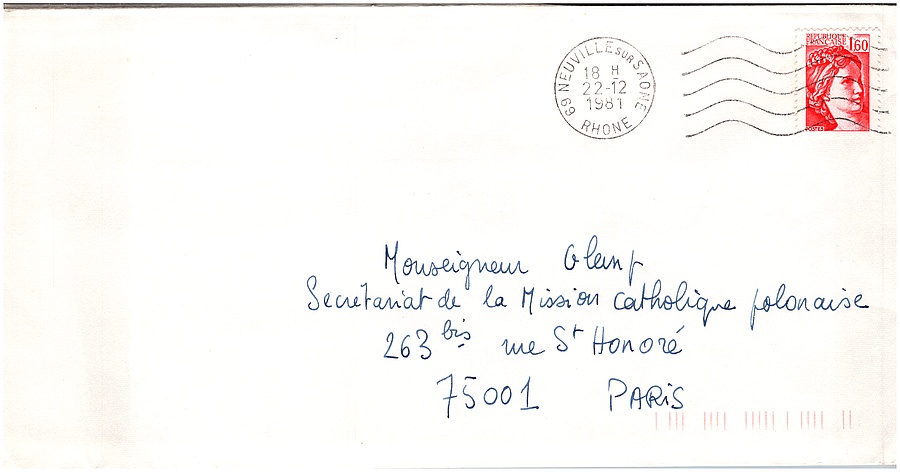 69 NEUVILLE SUR SAONE
18 H
22-12
1981
RHONE
REPUBLIQUE
FRANÇAISE
1,60
POSTES
Monseigneur Glemp
Secrétariat de la Mission Catholique polonaise
263 bis rue St Honoré
75001 PARIS